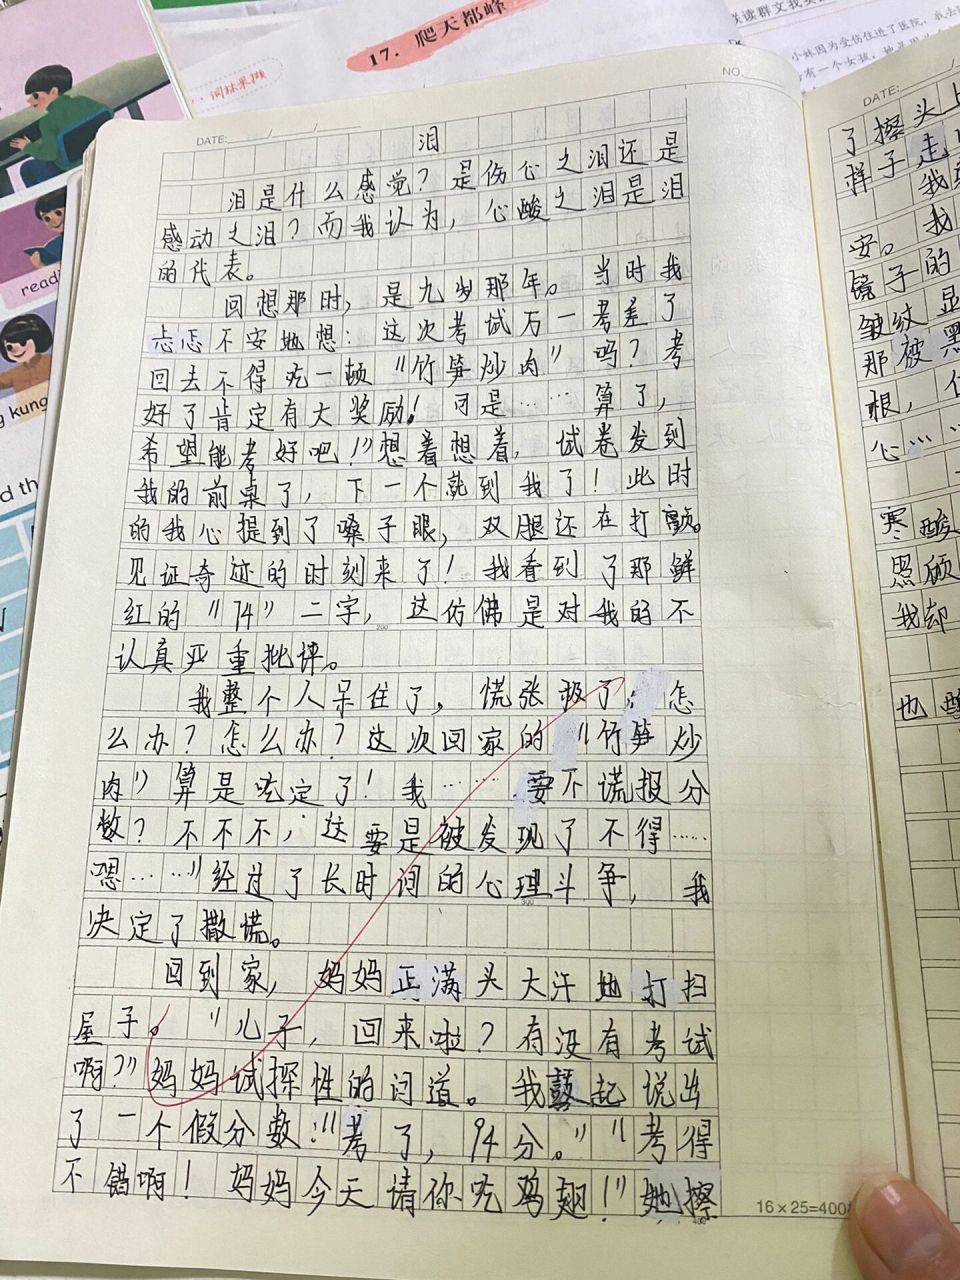 17. 爬天都峰
词林采撷
联读群文我
小妹因为受伤住进了医院
有一个女孩
readi
g kung
d th
NO.
DATE:
泪
泪是什么感觉？是伤心之泪还是
感动之泪？而我认为，心酸之泪是泪
的代表。
回想那时，是九岁那年。当时我
忐忑不安地想：这次考试万一考差了
回去不得吃一顿“竹笋炒肉”吗？考
好了肯定有大奖励！可是……算了，
希望能考好吧！”想着想着，试卷发到
我的前桌了，下一个就到我了！此时
的我心提到了嗓子眼，双腿还在打颤。
见证奇迹的时刻来了！我看到了那鲜
红的“74”二字，这仿佛是对我的不
认真严重批评。
我整个人呆住了，慌张极了：怎
么办？怎么办？这次回家的“竹笋炒
肉”算是吃定了！我……要不谎报分
数？不不不，这要是被发现了不得……
嗯……”经过了长时间的心理斗争，我
决定了撒慌。
回到家，妈妈正满头大汗地打扫
屋子。“儿子，回来啦？有没有考试
啊？”妈妈试探性的问道。我鼓起说出
了一个假分数：“考了，94分。”“考得
不错啊！妈妈今天请你吃鸡翅！”她擦
16×25=400
DATE:
了擦头上
样子走
我
安。我
镜子的
皱纹显
那被黑
根，
心……
寒酸
照顾
我却
也